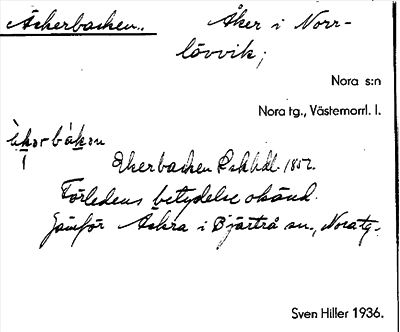 Äskerbacken. Åker i Norr-
lövvik;
Nora s:n
Nora tg., Västemorrl. l.
Ekerbacken Lskhdl. 1852.
Förledens betydelse okänd.
Jämför Åskra i Bjärtrå sn., Nora tg.
Sven Hiller 1936.